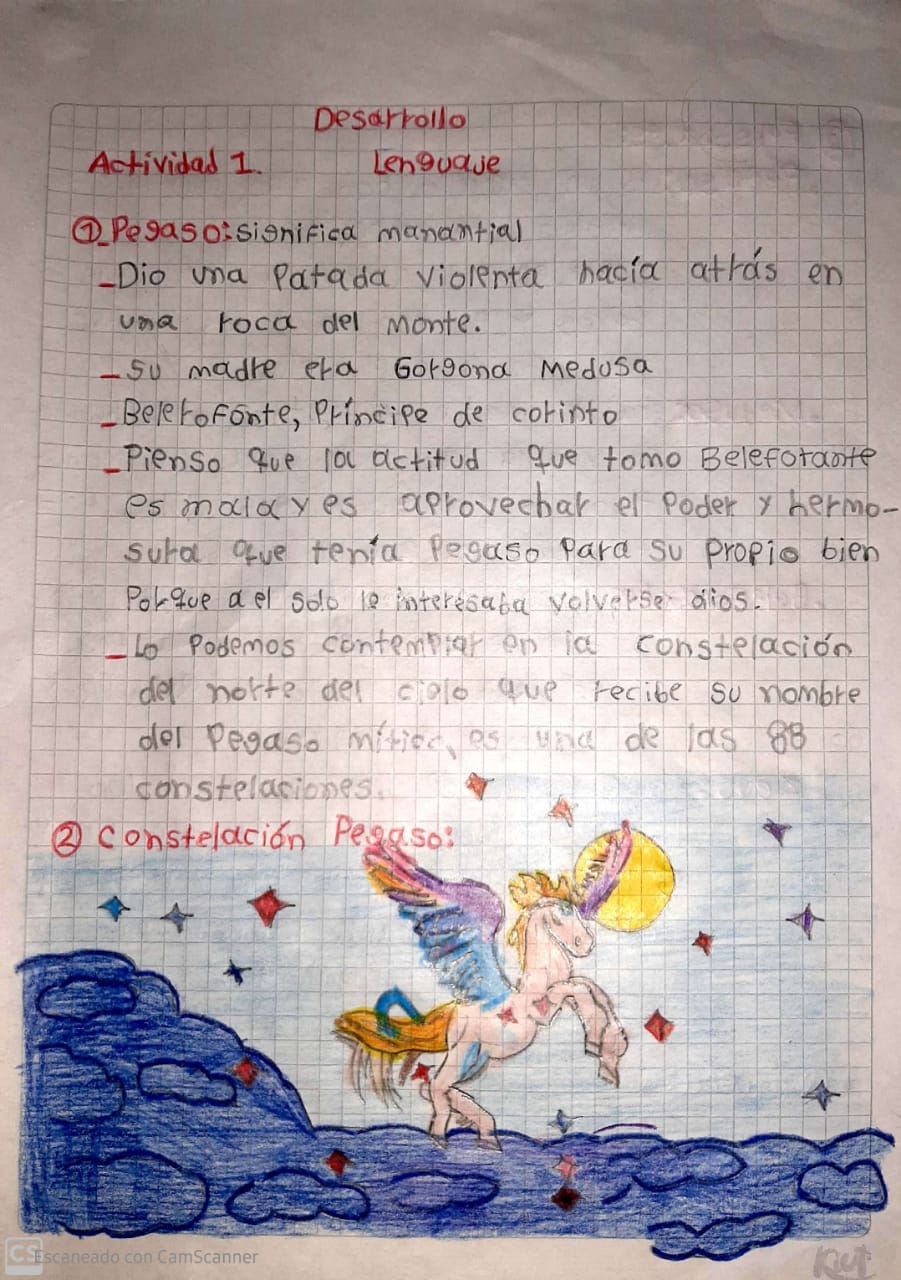 Desarrollo
Actividad 1. Lenguaje
1 Pegaso: significa manantial
- Dio una Patada violenta hacía atrás en
una roca del monte.
- su madre era Gorgona Medusa
- Belerofonte, Príncipe de corinto
- Pienso que la actitud que tomo Beleforante
es mala y es aprovechar el Poder y hermo-
sura que tenía Pegaso Para su propio bien
Porque a el solo le interesaba volverse dios.
- Lo Podemos contemplar en la constelación
del norte del cielo que recibe su nombre
del Pegaso mític, es una de las 88
constelaciones.
2 Constelación Pegaso:
CS Escaneado con CamScanner